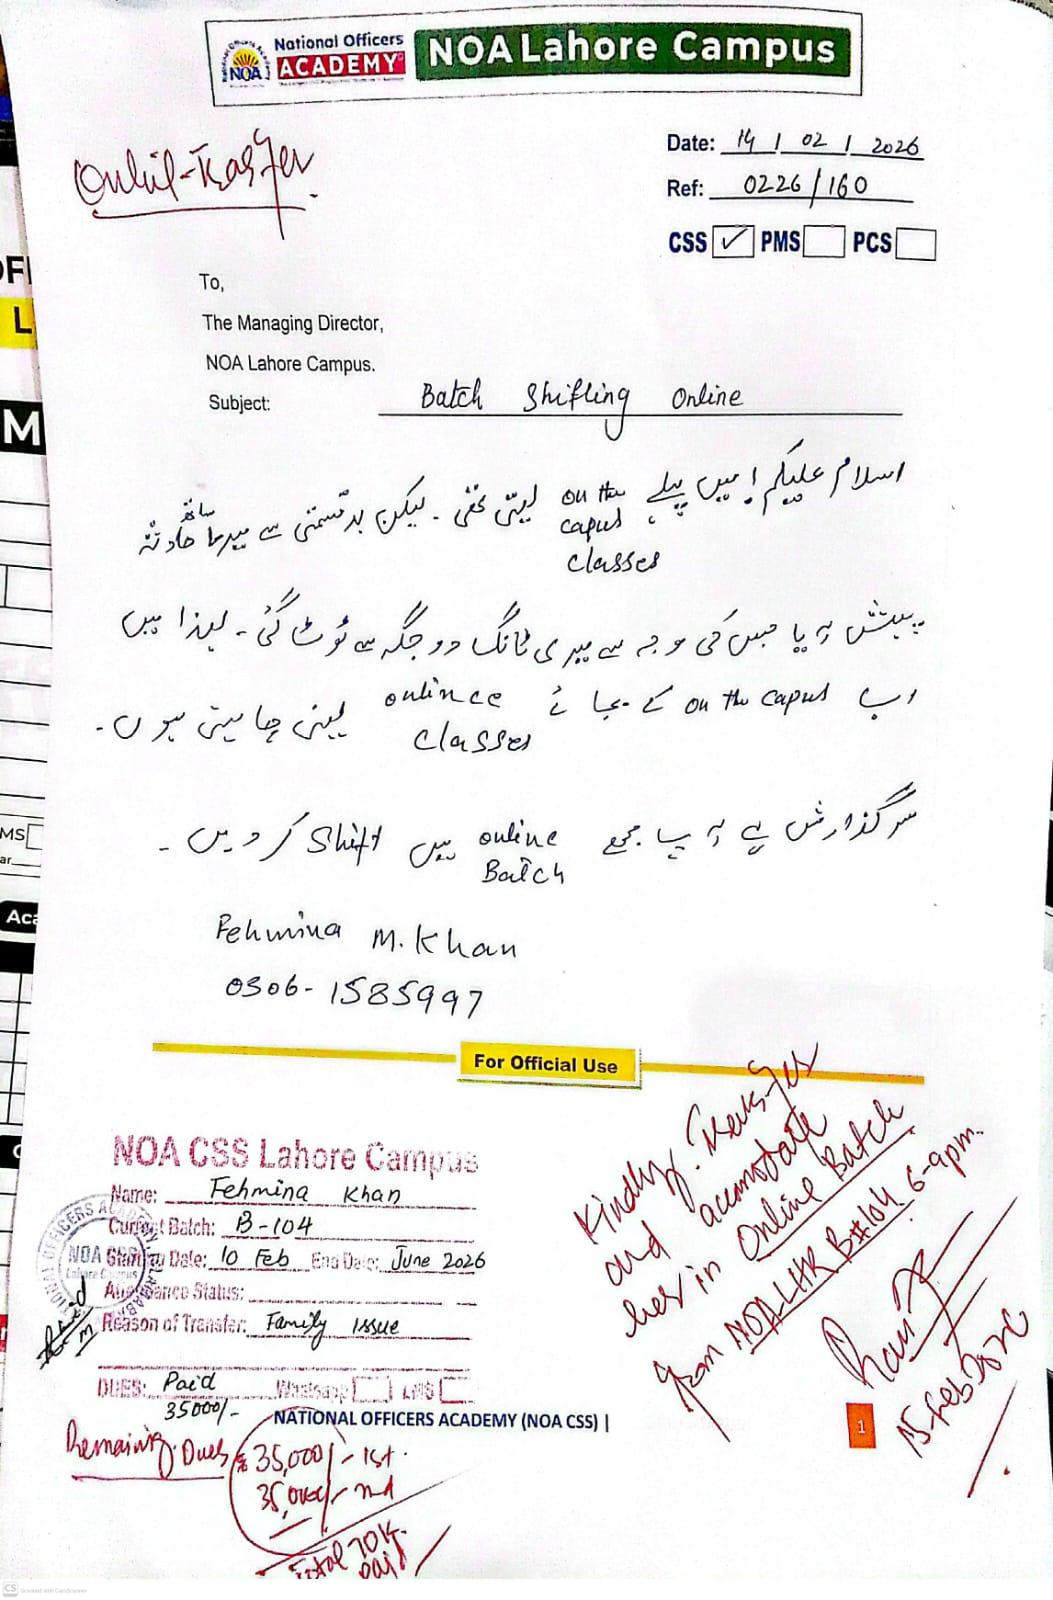 National Officers
ACADEMY
NOA
NOA Lahore Campus
Date: 14 / 02 / 2026
Ref: 0226/160
CSS ✓ PMS PCS
To,
The Managing Director,
NOA Lahore Campus.
Subject: Batch Shifting Online
اسلام علیکم! میں پہلے on the capus classes لیتی تھی۔ لیکن بدقسمتی سے میرے ساتھ حادثہ
پیش آیا جس کی وجہ سے میری ٹانگ دو جگہ سے ٹوٹ گئی۔ لہذا میں
اب on the capus کے بجائے onlince classes لینی چاہتی ہوں۔
سر گذارش ہے آپ مجھے online Batch میں shift کر دیں۔
Fehmina M. Khan
0306-1585997
For Official Use
NOA CSS Lahore Campus
Name: Fehmina Khan
Current Batch: B-104
Date: 10 Feb End Date: June 2026
Attendance Status:
Reason of Transfer: Family Issue
DUES: Paid Whatsapp LMS
35000/-
NATIONAL OFFICERS ACADEMY (NOA CSS) |
1
Remaining Dues 35,000/- 1st.
35,000/- nd
Total 70K
paid
Kindly Transfer
and accomodate
her in Online Batch
from NOA-LHR B#104 6-9pm.
15-Feb 2026